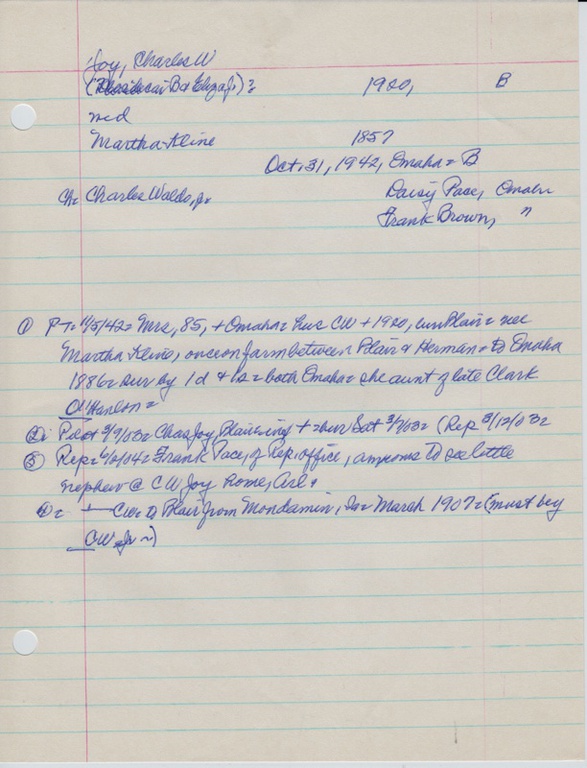 Joy, Charles W
(Mordecai B & Eliza J.)? 1920, B
md
Martha Kline 1857
Oct. 31, 1942, Omaha = B
Ch= Charles Waldo, Jr. Daisy Pace, Omaha
Frank Brown, "
① PT= 11/5/42= Mrs, 85, + Omaha= hus CW + 1920, cem Blair= nee
Martha Kline, once on farm between Blair & Herman= to Omaha
1886= sur by 1d & 1s= both Omaha= she aunt of late Clark
O'Hanlon=
② Pilot 3/9/03= Chas Joy, Blair + Sat 3/7/03= (Rep 3/12/03=
③ Rep= 6/0/14= Frank Pace, of Rep. office, anxious to see little
nephew @ CW Joy home,
④= CW= to Blair from Mondamin, Ia= March 1907= (must be
CW. Jr ~)